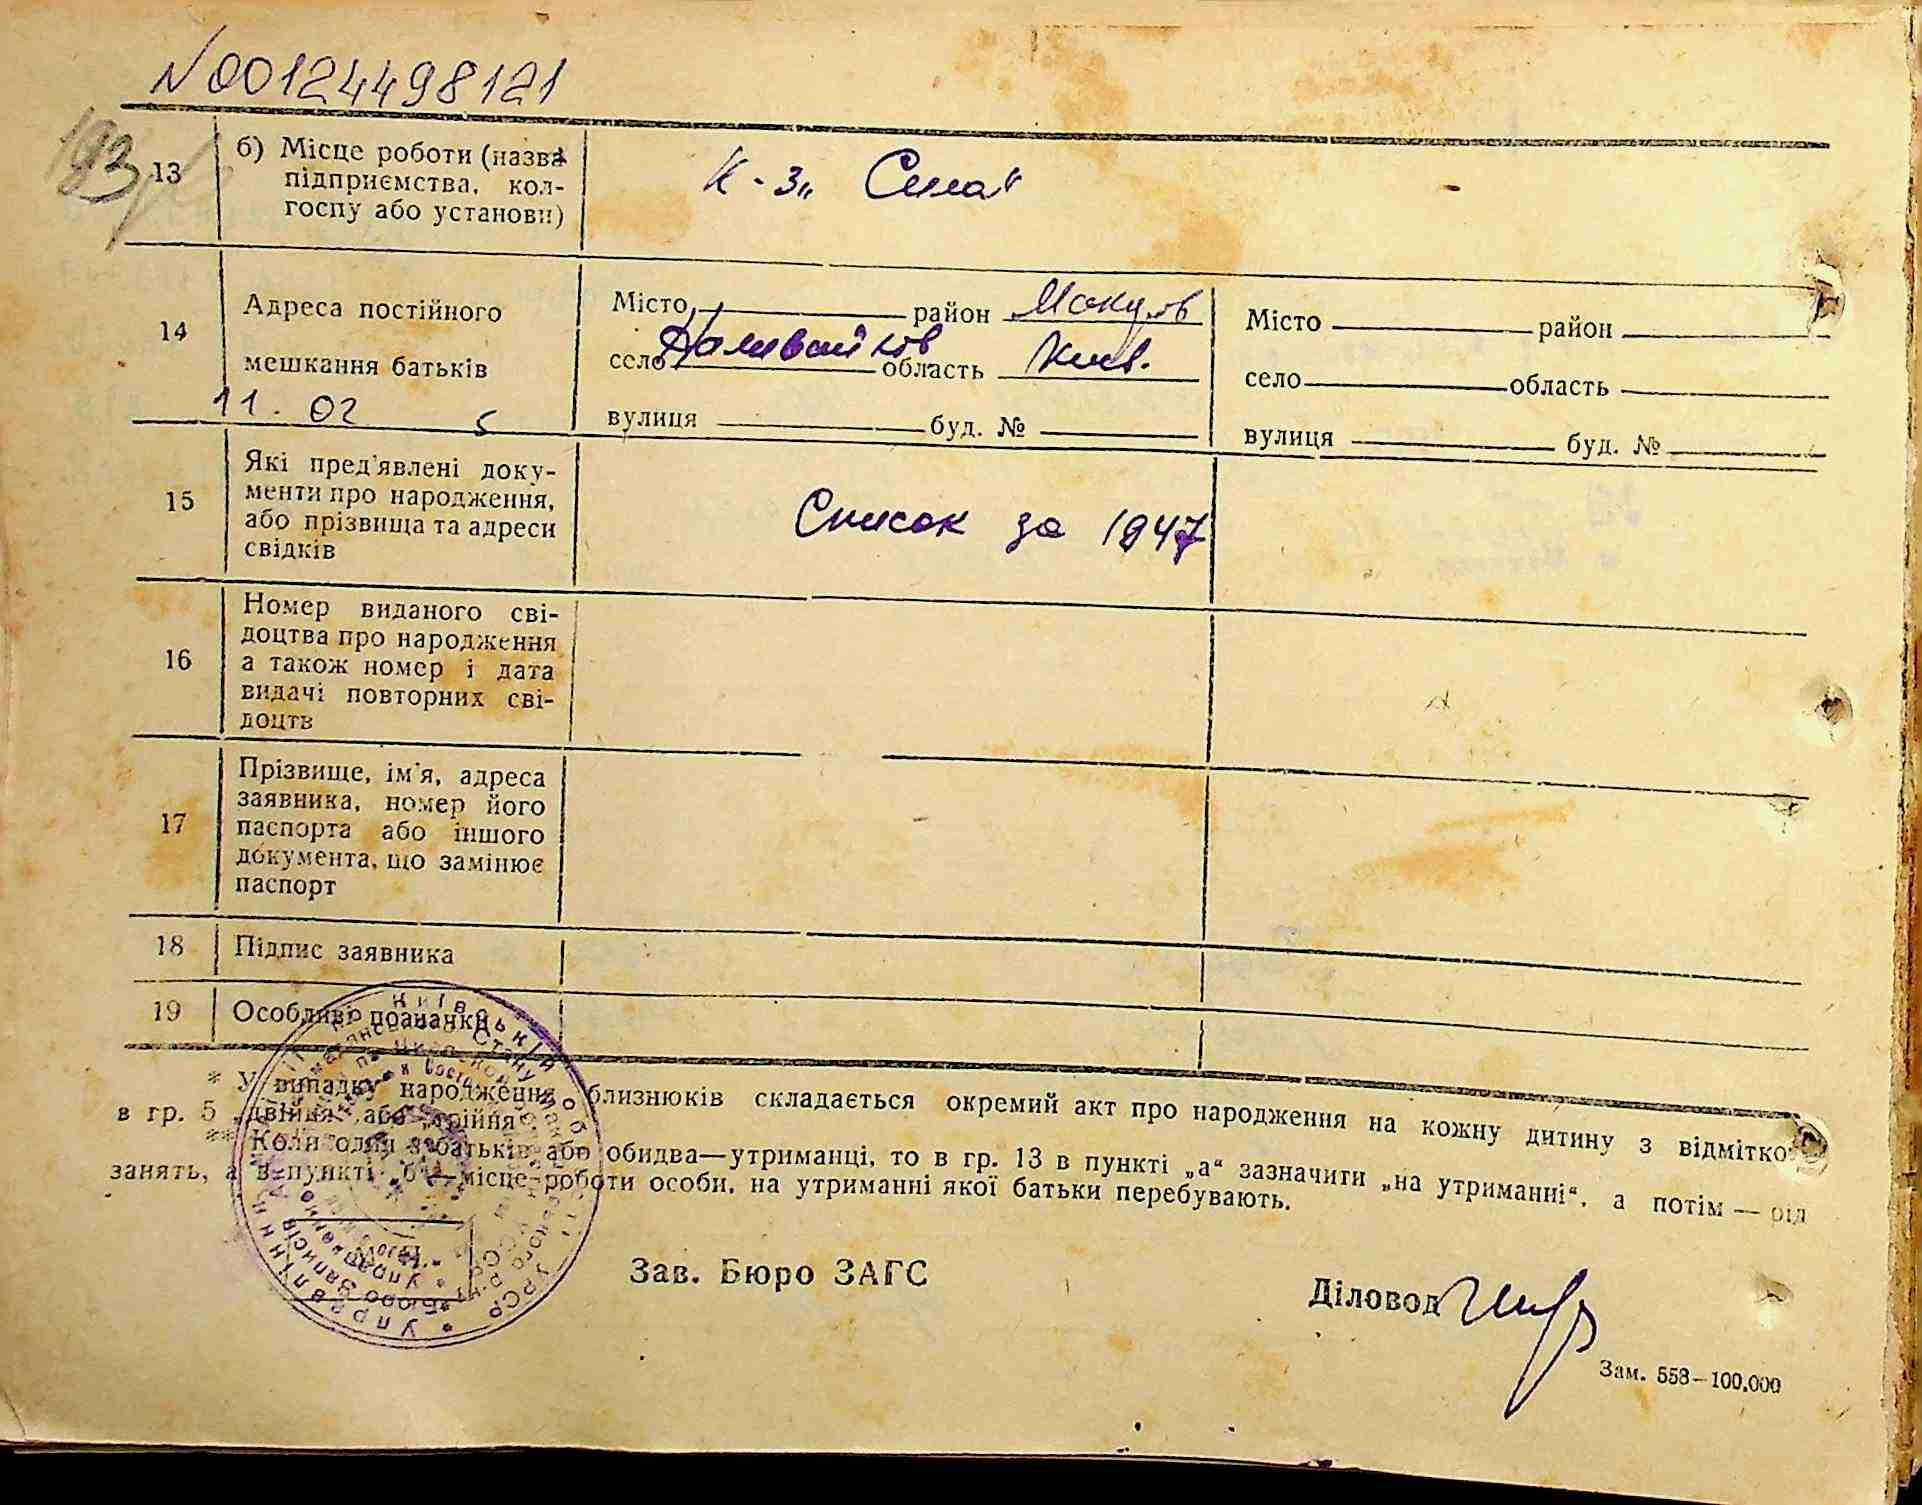 N00124498121
193
13
б) Місце роботи (назва
підприємства, кол-
госпу або установи)
К-з „Сила"
14
Адреса постійного
мешкання батьків
11. 02 5
Місто район Макузов
село Наливайков область Київ.
вулиця буд. №
Місто район
село область
вулиця буд. №
15
Які пред'явлені доку-
менти про народження,
або прізвища та адреси
свідків
Список за 1947
16
Номер виданого сві-
доцтва про народження
а також номер і дата
видачі повторних сві-
доцтв
17
Прізвище, ім'я, адреса
заявника, номер його
паспорта або іншого
документа, що замінює
паспорт
18
Підпис заявника
19
Особливі позначки
* У випадку народження близнюків складається окремий акт про народження на кожну дитину з відмітко
в гр. 5 „двійня" або „трійня".
** Коли один з батьків або обидва—утриманці, то в гр. 13 в пункті „а" зазначити „на утриманні", а потім — рід
занять, а в пункті „б"—місце роботи особи, на утриманні якої батьки перебувають.
Зав. Бюро ЗАГС
Діловод
Зам. 558—100.000